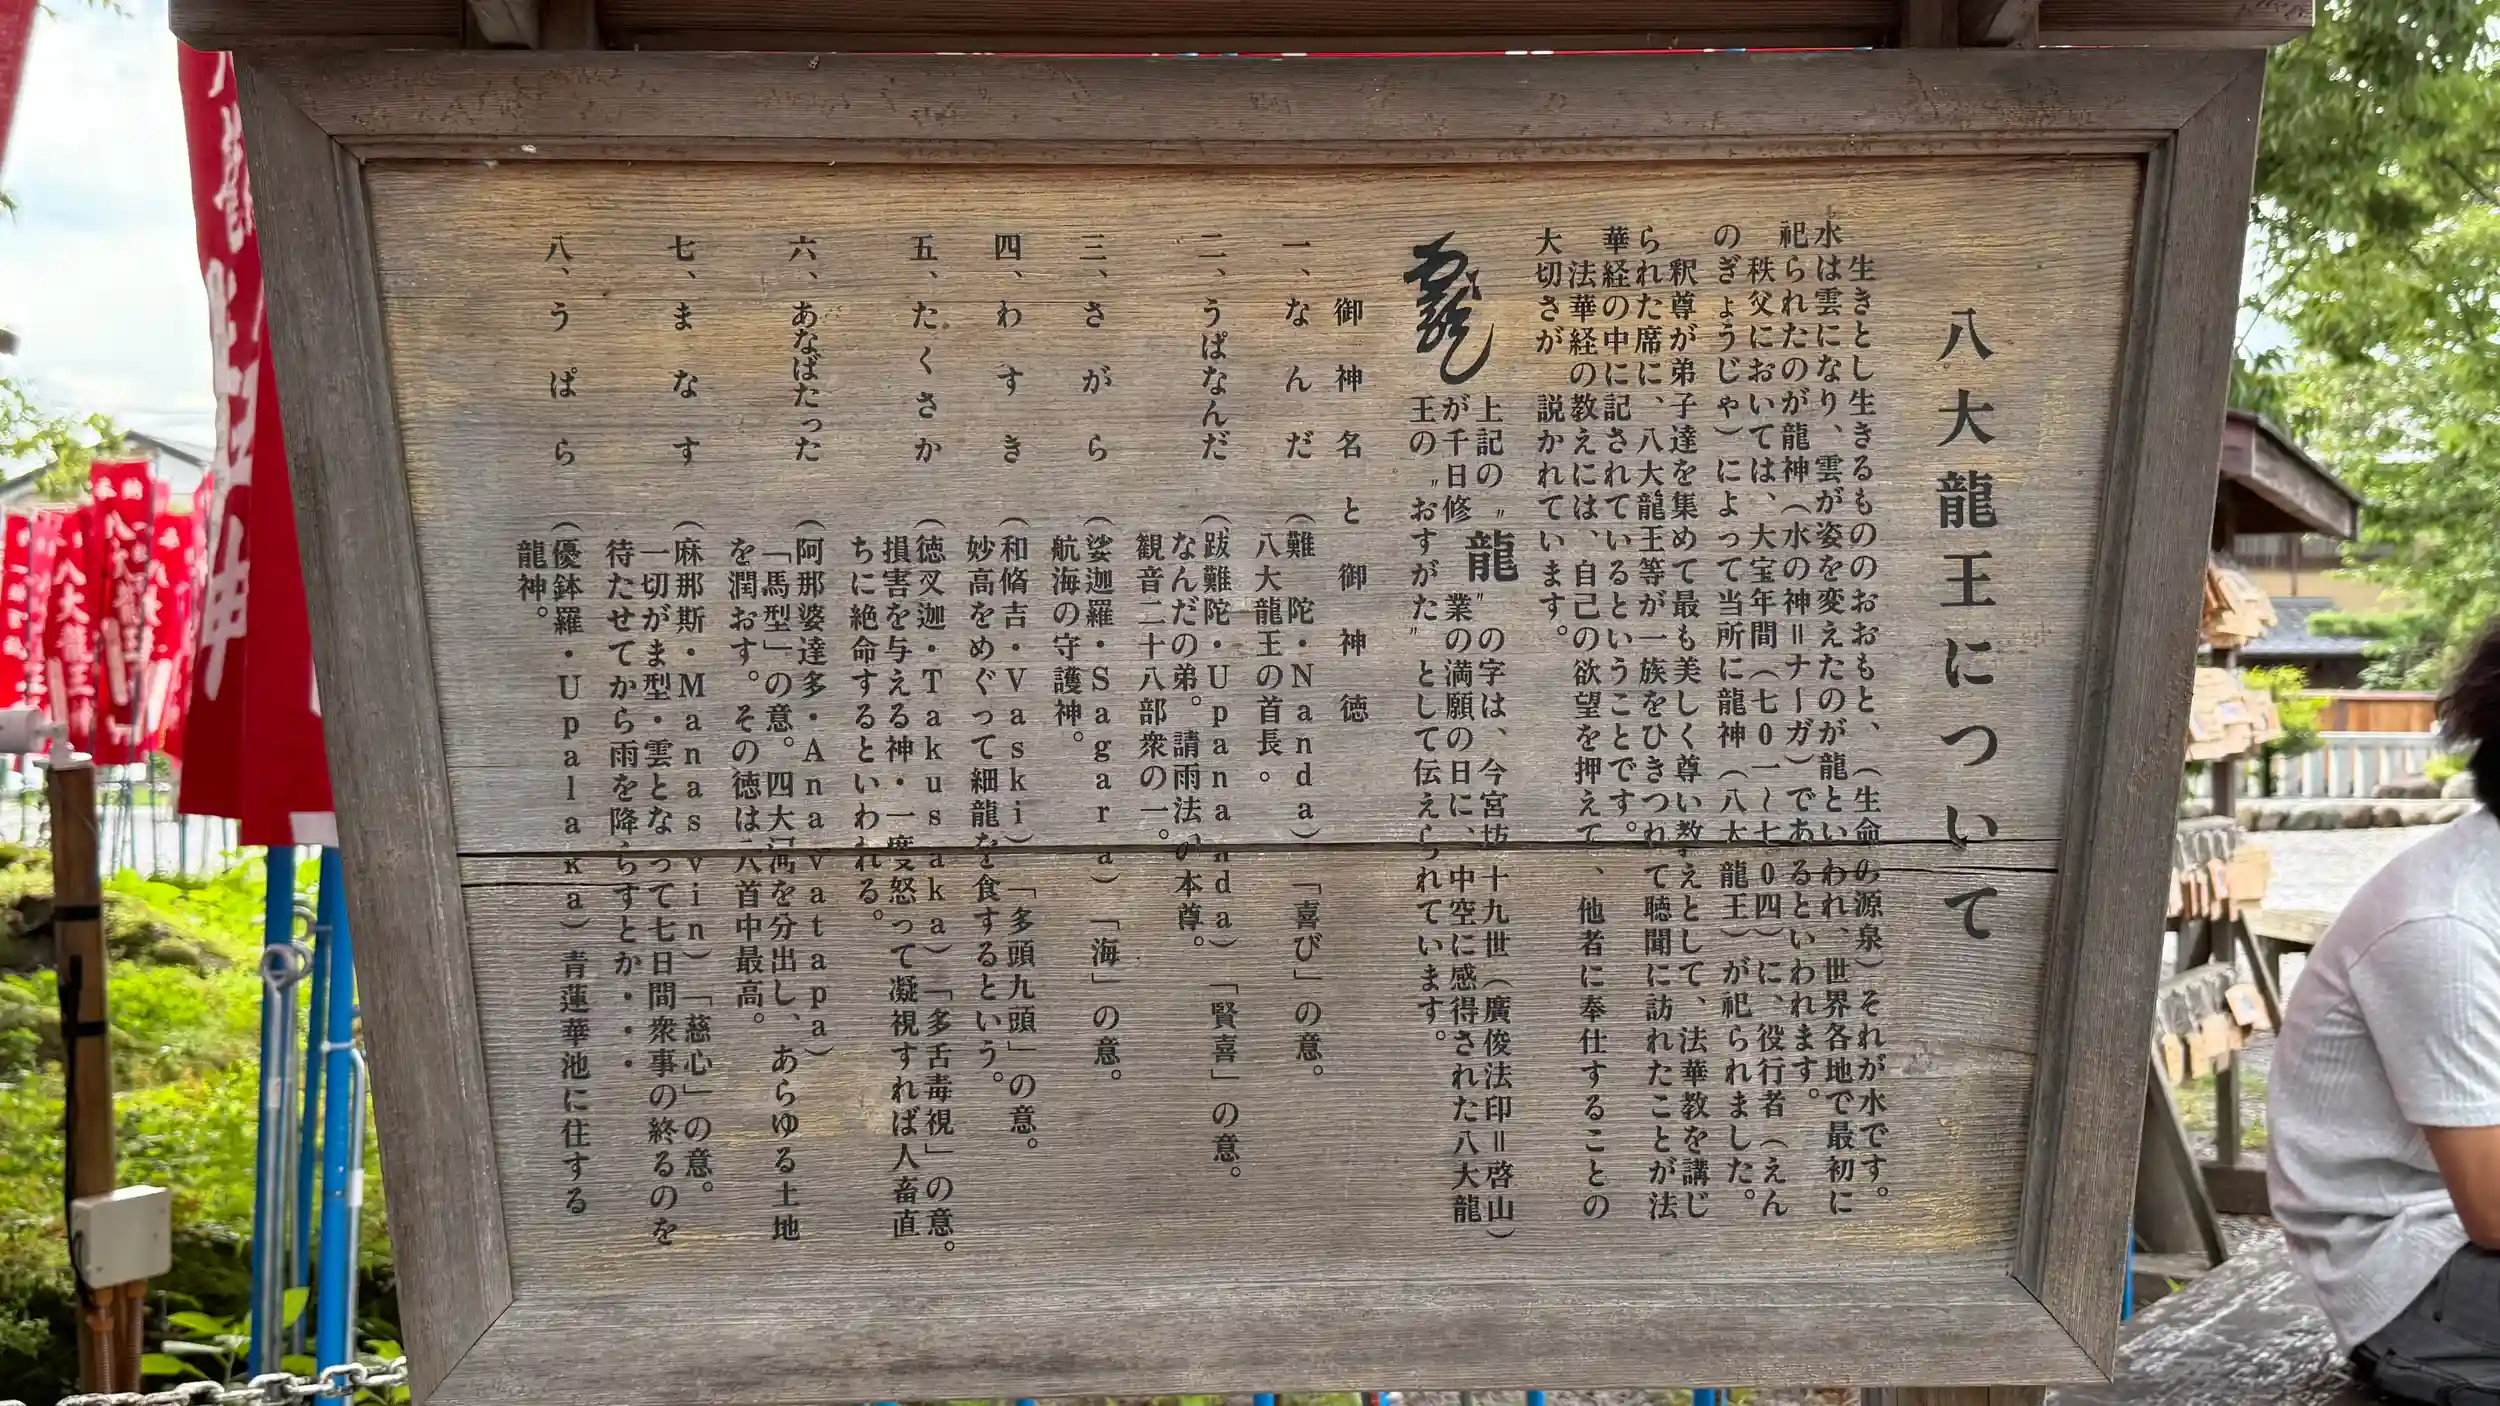 八大龍王について
生きとし生きるもののおおもと、（生命の源泉）それが水です。
水は雲になり、雲が姿を変えたのが龍といわれ、世界各地で最初に
祀られたのが龍神（水の神＝ナーガ）であるといわれます。
秩父においては、大宝年間（七0一～七0四）に、役行者（えん
のぎょうじゃ）によって当所に龍神（八大龍王）が祀られました。
釈尊が弟子達を集めて最も美しく尊い教えとして、法華教を講じ
られた席に、八大龍王等が一族をひきつれて聴聞に訪れたことが法
華経の中に記されているということです。
法華経の教えには、自己の欲望を押えて、他者に奉仕することの
大切さが説かれています。
龍
上記の〝龍〟の字は、今宮坊十九世（廣俊法印＝啓山）
が千日修業の満願の日に、中空に感得された八大龍
王の〝おすがた〟として伝えられています。
御神名と御神徳
一、なんだ（難陀・Nanda）「喜び」の意。
八大龍王の首長。
二、うぱなんだ（跋難陀・Upananda）「賢喜」の意。
なんだの弟。請雨法の本尊。
観音二十八部衆の一。
三、さがら（娑迦羅・Sagara）「海」の意。
航海の守護神。
四、わすき（和脩吉・Vaski）「多頭九頭」の意。
妙高をめぐって細龍を食するという。
五、たくさか（徳叉迦・Takusaka）「多舌毒視」の意。
損害を与える神・一度怒って凝視すれば人畜直
ちに絶命するといわれる。
六、あなばたった（阿那婆達多・Anavatapa）
「馬型」の意。四大河を分出し、あらゆる土地
を潤おす。その徳は八首中最高。
七、まなす（麻那斯・Manasvin）「慈心」の意。
一切がま型・雲となって七日間衆事の終るのを
待たせてから雨を降らすとか・・・
八、うぱら（優鉢羅・Upalaka）青蓮華池に住する
龍神。